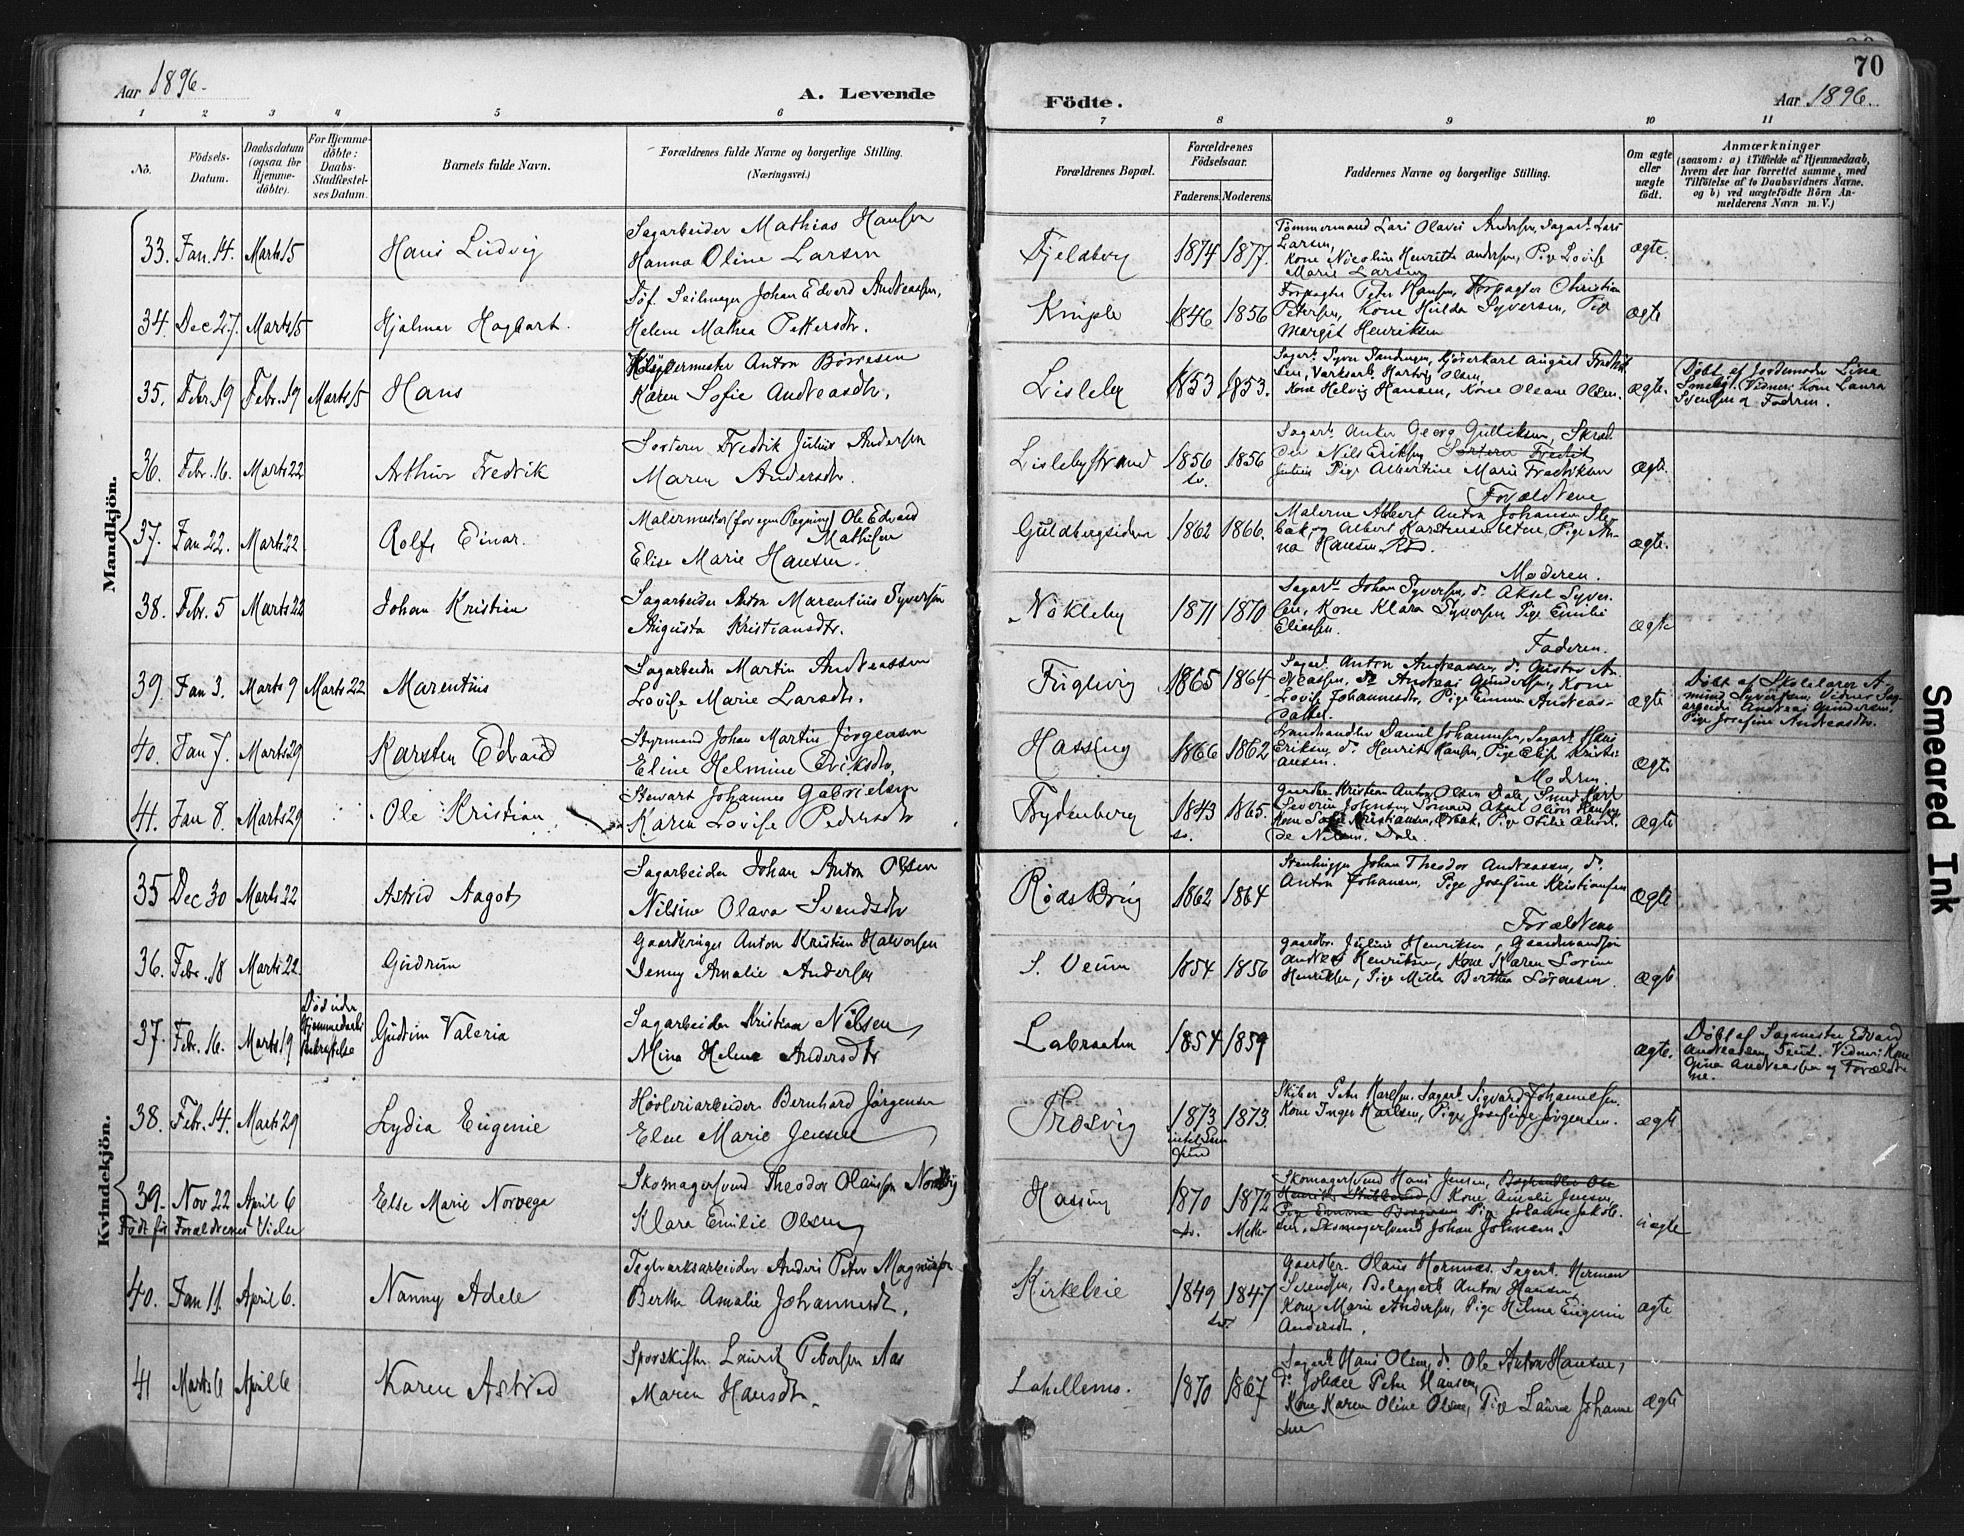 70
Aar 1896.
A. Levende
Födte.
Aar 1896.
1 2 3 4 5 6 7 8 9 10 11
No.
Födsels-
Datum.
Daabsdatum
(ogsaa for
Hjemme-
döbte).
For Hjemme-
döbte:
Daabs-
Stadfæstel-
ses Datum.
Barnets fulde Navn.
Forældrenes fulde Navne og borgerlige Stilling.
(Næringsvei.)
Forældrenes Bopæl.
Forældrenes
Födselsaar.
Faderens. Moderens.
Faddernes Navne og borgerlige Stilling.
Om ægte
eller
uægte
födt.
Anmærkninger
(saasom: a) i Tilfælde af Hjemmedaab,
hvem der har forrettet samme, med
Tilföielse af to Daabsvidners Navne,
og b) ved uægtefödte Börn An-
melderens Navn m. V.)
Mandkjön.
33. Jan. 14. Marts 15
Hans Ludvig
Sagarbeider Mathias Hansen
Hanna Oline Larsen
Fjeldberg
1874 1877.
Tømmermand Lars Olaves Andersen, Sagarb. Lars
Larsen,
Kone Nicoline Henriette Andersen, Pige Lovise
Marie Larsen
ægte.
34. Dec 27. Marts 15
Hjalmar Hagbart.
Söf. Seilmager Johan Edvard Andreassen,
Helene Mathea Pettersdtr.
1846 1856
Forpagter Peter Hansen, Forpagter Christian
Petersen, Kone Hulda Syversen, Pige
Margit Henriksen
ægte
35. Febr. 19 Febr. 19 Marts 15
Hans
Anton Börresen
Karen Sofie Andreasdtr.
Lisleby
1853 1853.
Kone Helvig Hansen, Kone Oleane Olsen.
ægte.
Döbt af Jordemoder Lina
Smeby. Vidner: Kone Laura
Svensen og Faderen.
36. Febr. 16. Marts 22
Arthur Fredrik
Fredrik Julius Andersen
Maren Andersdtr.
Lislebystrand
1856 1856
sv.
Sagarb. Anton Georg Gulliksen, Skræd-
der Nils Eriksen
Julius Pige Albertine Marie Fredriksen
Forældrene
ægte.
37. Jan 22. Marts 22
Rolf Einar.
Malermester (for egen Regning) Ole Edvard
Mathisen
Elise Marie Hansen.
Guldbergsiden
1862 1866.
Malerne Albert Anton Johansen
Albert Karstensen Pige An-
na Hansen
Moderen.
ægte.
38. Febr. 5 Marts 22
Johan Kristian
Sagarbeider Anton Marentius Syversen
Augusta Kristiansdtr.
Nökleby
1871 1870
Sagarb. Johan Syversen, do. Aksel Syver-
sen, Kone Klara Syversen, Pige Emilie
Eliassen.
Faderen.
ægte
39. Jan 3. Marts 9 Marts 22
Marentius
Sagarbeider Martin Andreassen
Lovise Marie Larsdtr.
Fuglevig
1865 1864
Sagarb. Anton Andreassen, do. Gustav An-
dreassen, do. Andreas Gundersen, Kone
Lovise Johannesdtr, Pige Emma Andreas-
datter.
ægte
Döbt af Skolelærer A-
mund Syversen. Vidner: Sag-
arbeider Andreas Gundersen,
Pige Josefine Andreasdtr.
40. Jan 7. Marts 29
Karsten Edvard
Styrmand Johan Martin Jörgensen
Eline Helmine Eriksdtr.
Hassing
1866 1862
Landhandler Daniel Johannesen, Sagarb. Hans
Eriksen, do. Henrik Hansen, Pige Elise Kristi-
ansen.
Moderen.
ægte
41. Jan 8. Marts 29
Ole Kristian
Stewart Johannes Gabrielsen
Karen Lovise Pedersdtr
Frydenberg
1843 1865.
sv.
Gaardbr. Kristian Anton Olsen Dale, Smed Karl
Severin Johnsen, Sömand Aksel Oliver Hansen,
Kone Sofie Kristiansen, Ørbæk, Pige Otilie
Nilsen, Dale.
ægte
Kvindekjön.
35 Dec 30 Marts 22
Astrid Aagot
Sagarbeider Johan Anton Olsen
Nilsine Olava Svendsdtr
Röds Brug
1862 1864
Stenhugger Johan Theodor Andreassen, do.
Anton Johansen, Pige Josefine Kristiansen
Forældrene
ægte
36. Febr. 18 Marts 22.
Gudrun
Gaardbruger Anton Kristian Halvorsen
Jenny Amalie Andersen
S. Veum
1854 1856
Gaardbr. Julius Henriksen, Gaardmandssön
Andreas Henriksen, Kone Karen Lovine
Henriksen, Pige Milla Berthea Sörensen.
ægte
37. Febr. 16. Marts 19
Död uden
Hjemmedaabs
bekræftelse
Gudrun Valeria
Sagarbeider Kristian Nilsen
Mina Helene Andersdtr
Labraaten
1854 1859
ægte.
Döbt af Sagmester Edvard
Andreassen, Vidner: Kone
Gina Andreassen og Foræld-
rene.
38. Febr. 14. Marts 29
Lydia Eugenie
Hövleriarbeider Bernhard Jörgensen
Elne Marie Jensen
Trosvig
1873 1873.
Skiber Peter Karlsen. Sagarb. Sigvard Johannesen.
Kone Inger Karlsen, Pige Josefine Jörgensen.
ægte
39. Nov 22 April 6
Födt før Forældrenes Vielse
Else Marie Norvega
Skomagersvend Theodor Olaussen Nordvig
Klara Emilie Olsen
Hassing
1870 1872
sv. Meth.
Skomagersvend Hans Jensen, Boghandler Ole
Henrik Kone Amalie Jensen,
Pige Emma Borgersen Pige Johanne Jakob-
sen, Skomagersvend Johan Johnsen.
uægte
40. Jan 11. April 6.
Nanny Adele
Teglværksarbeider Anders Peter Magnussen
Berthe Amalie Johannesdtr.
Kirkeleie
1849 1847
sv.
Gaardbr. Olaus Hornnæs. Sagarb. Herman
Svendsen, Anton Hansen,
Kone Marie Andersen, Pige Hilma Eugenie
Andersdtr.
ægte
41 Marts 6 April 6
Karen Astrid
Sporskifter Laurits Petersen Aas
Maren Hansdtr.
Lahellemo.
1870 1867
Sagarb. Hans Olsen, do. Ole Anton Hansen,
do. Johan Peter Hansen,
Kone Karen Oline Olsen, Pige Laura Johanne-
sen
ægte
Smeared Ink